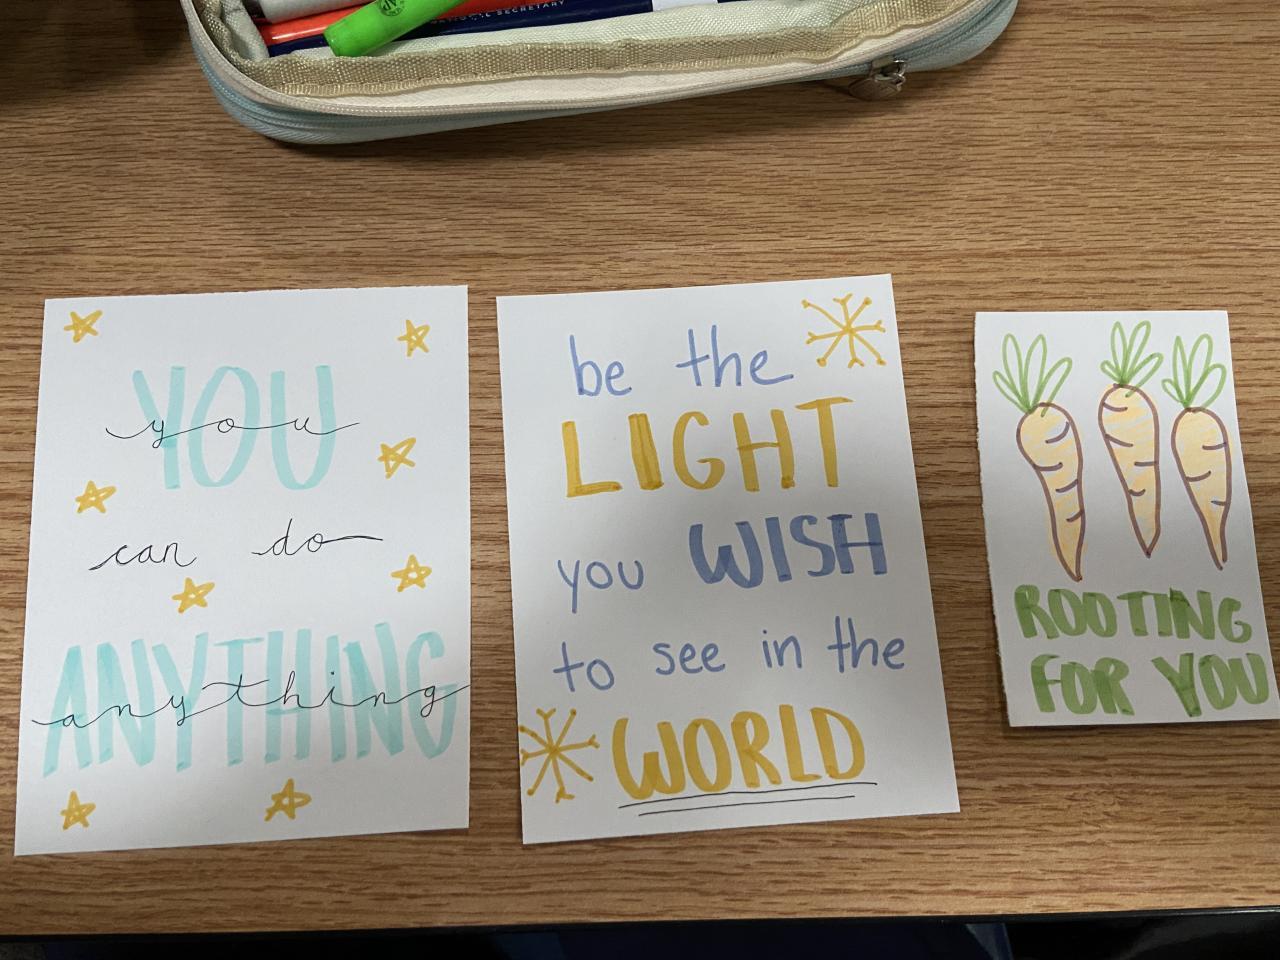 SECRETARY
YOU
you
can do
ANYTHING
anything
be the
LIGHT
you WISH
to see in the
WORLD
ROOTING
FOR YOU